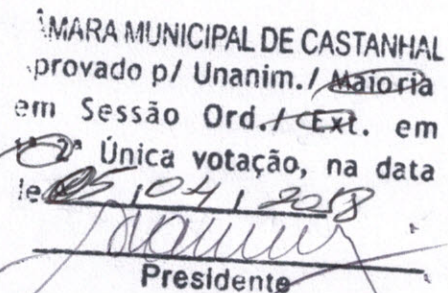 ÂMARA MUNICIPAL DE CASTANHAL
provado p/ Unanim./ Maioria
em Sessão Ord./ Ext. em
1ª 2ª Única votação, na data
de 05 / 04 / 2018
Presidente